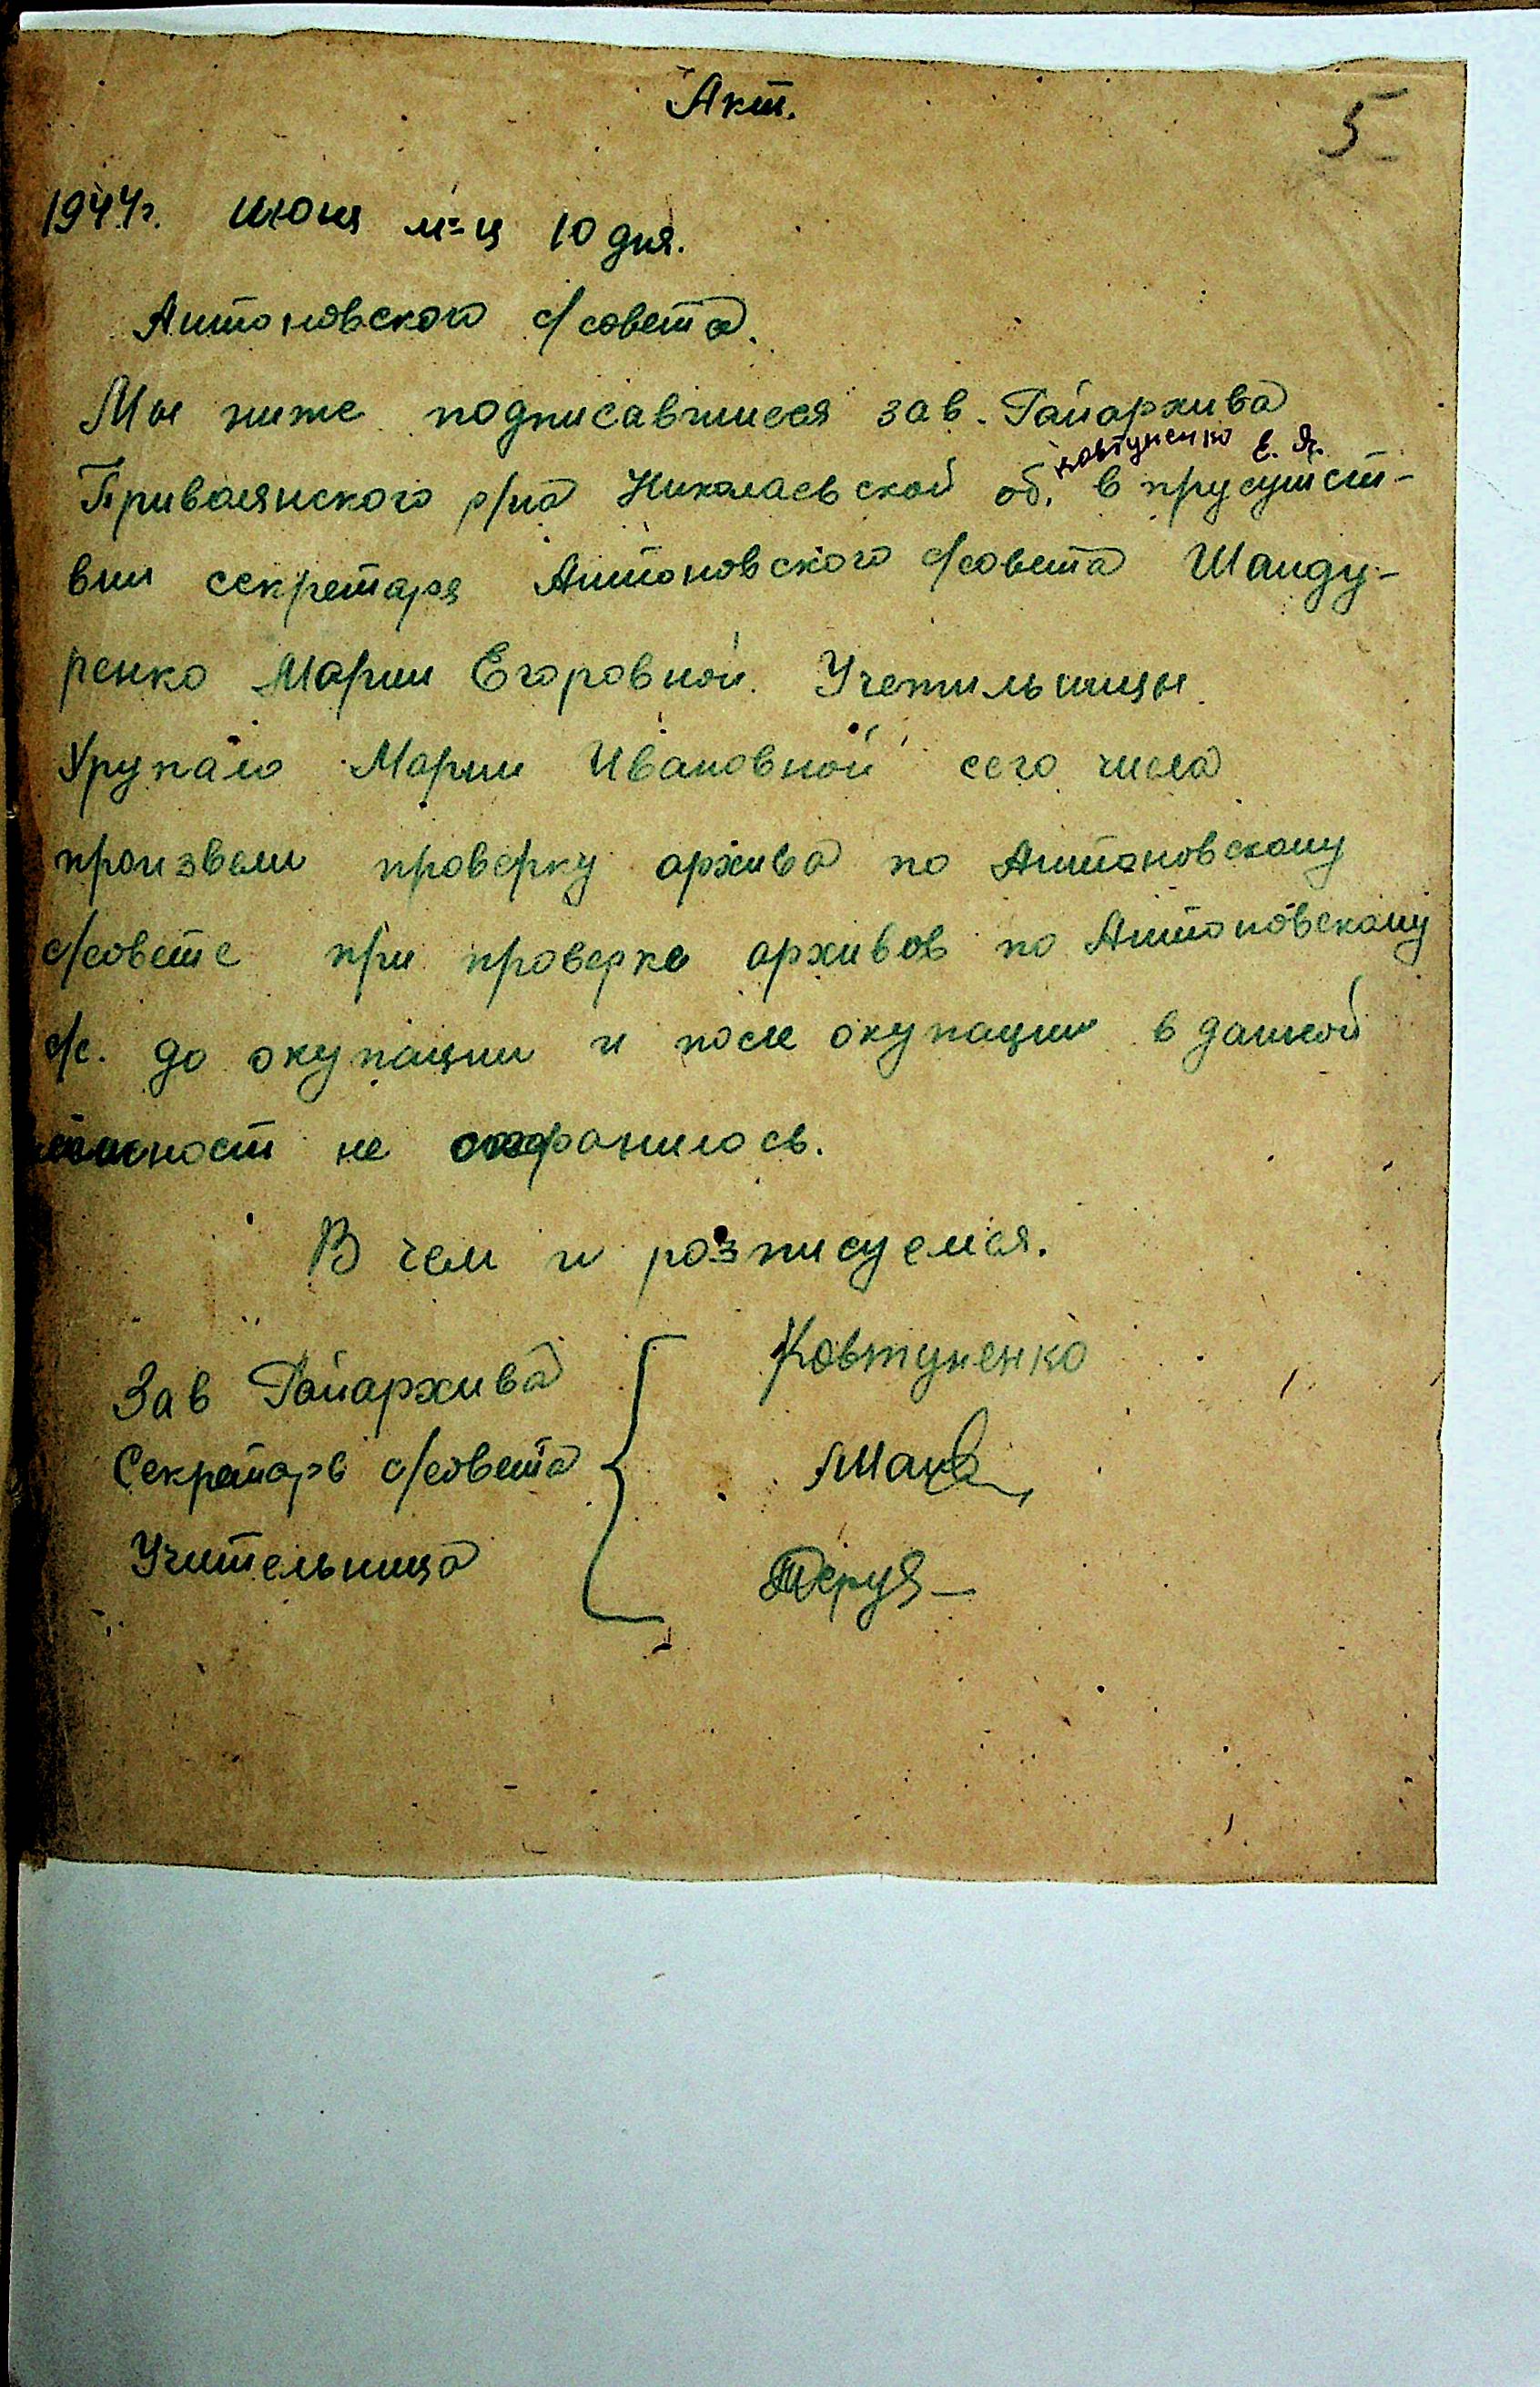 Акт.
5
1944г. июня м-ц 10 дня.
Антоновского с/совета.
Мы ниже подписавшиеся зав. Райархива
Ковтуненко Е. Я.
Привольянского р/на Николаевской об. в прусутст-
вии секретаря Антоновского с/совета Шанду-
ренко Марии Егоровной. Учетильницы
Урупало Марии Ивановной сего числа
произвели проверку архива по Антоновскому
с/совете при проверке архивов по Антоновскому
с/с. до окупации и после окупации в данной
не сохранилось.
В чем и розписуемся.
Зав Райархива Ковтуненко
Секретарь с/совета
Учительница